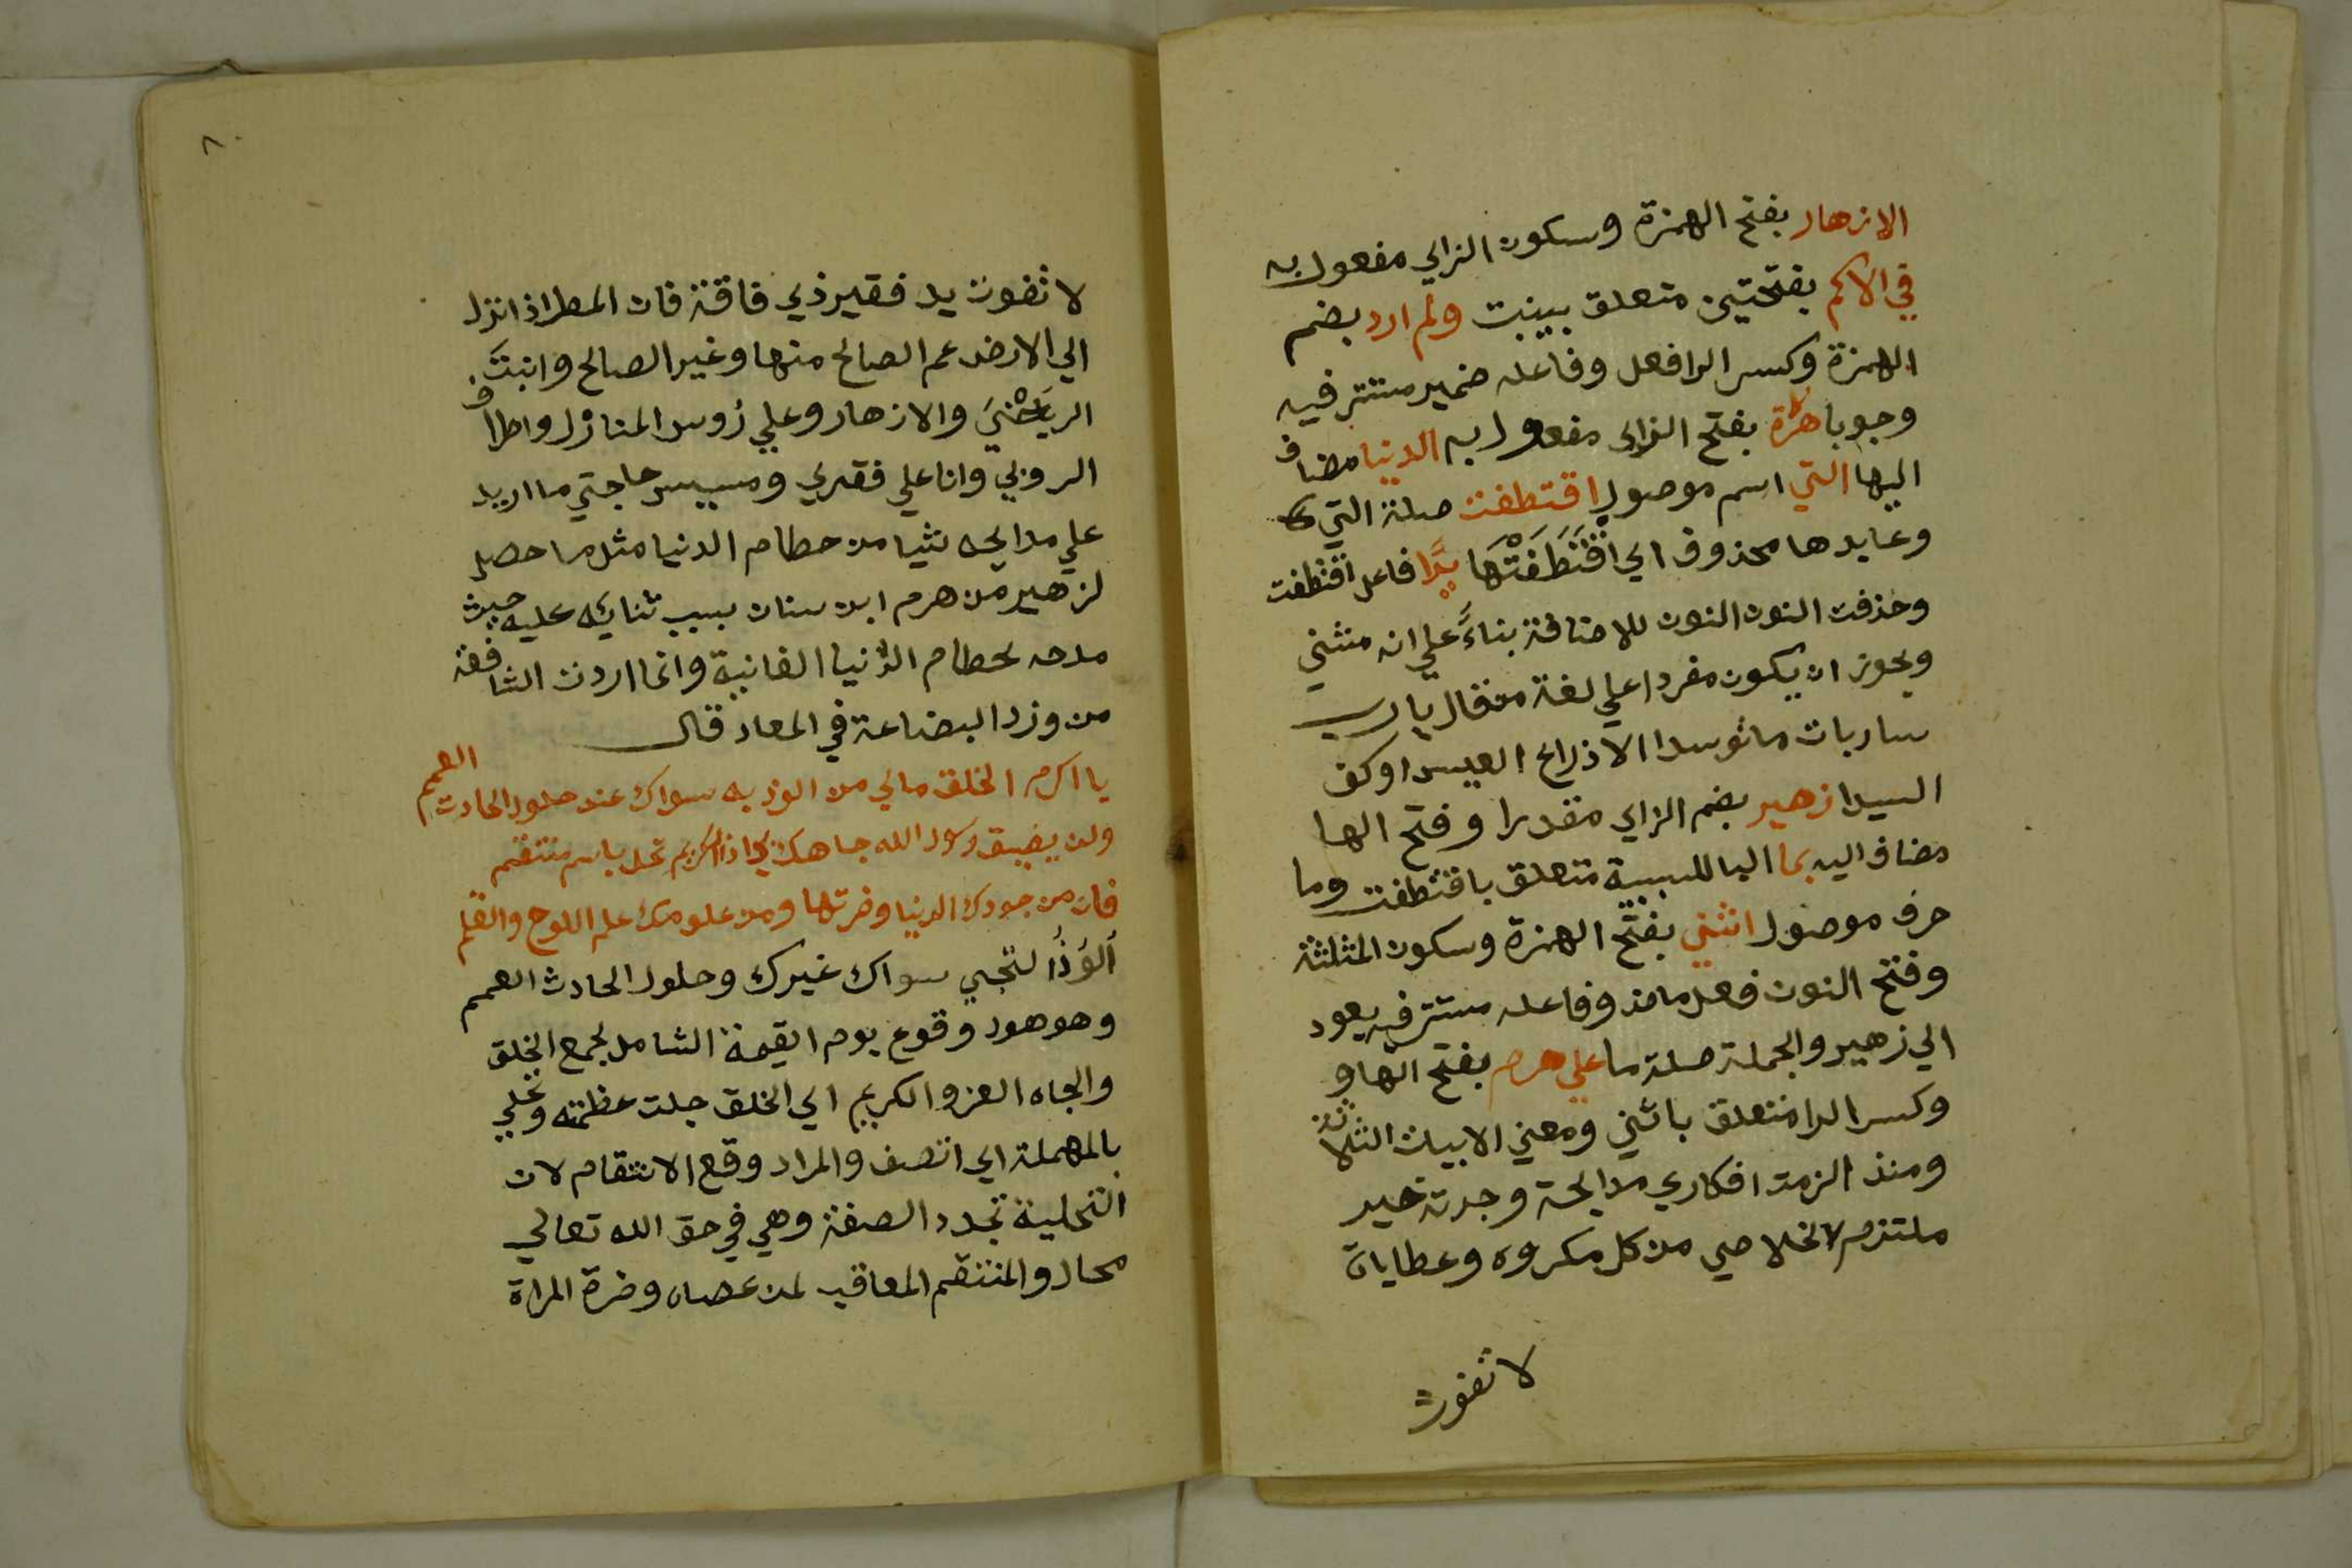 الازهار بفتح الهمزة وسكون الزاي مفعول به
في الاكم بفتحتين متعلق بينبت ولم ارد بضم
الهمزة وكسر الرا فعل وفاعله ضمير مستتر فيه
وجوبا زهرة بفتح الزاى مفعول به الدنيا مضاف
اليها التي اسم موصول اقتطفت صلة التي
وعايدها محذوف اي اقْتَطَفَتْهَا يَدَا فاعل اقتطفت
وحذفت النون النون للاضافة بناءً علي انه مثني
ويجوز ان يكون مفردا علي لغة من قال يا رب
ساربات ما توسدا الا ذراع العيس او كف
اليدا زهير بضم الزاي مقدرا وفتح الها
مضاف اليه بما البا للسببية متعلق باقتطفت وما
حرف موصول اثني بفتح الهمزة وسكون المثلثة
وفتح النون فعل ماض وفاعله مستتر فيه يعود
الي زهير والجملة صلة ما علي هرم بفتح الها و
وكسر الرا متعلق باثني ومعني الابيات الثلاثة
ومنذ الزمت افكاري مدايحه وجدته خير
ملتزم لاخلاصي من كل مكروه وعطاياه
لا تفوت
٨٠
لا تفوت يد فقير ذي فاقة فان المطر اذا نزل
الي الارض عم الصالح منها وغير الصالح وانبت
والازهار وعلي رُوس المنازل واطراف
الروبي وانا علي فقري ومسيس حاجتي ما اريد
علي مدايحه شيا من حطام الدنيا مثل ما حصل
لزهير من هرم ابن سنان بسبب ثنايه عليه حيث
مدحه لحطام الدنيا الفانية وانما اردت الشافعة
من وزر البضاعة في المعاد قال
يا اكرم الخلق مالي من الوذ به سواك عند حلول الحادث العمم
ولن يضيق رسول الله جاهك بي اذا الكريم تحلى باسم منتقم
فان من جودك الدنيا وضرتها ومن علومك علم اللوح والقلم
اَلُوَذُ التجي سواك غيرك وحلول الحادث العمم
وهو هول وقوع يوم القيمة الشامل لجمع الخلق
والجاه العز والكريم اي الخلق جلت عظمته وتحلي
بالمهملة اي اتصف والمراد وقع الانتقام لان
التحلية تجدد الصفة وهي في حق الله تعالي
محال والمنتقم المعاقب لمن عصاه وضرة المراة